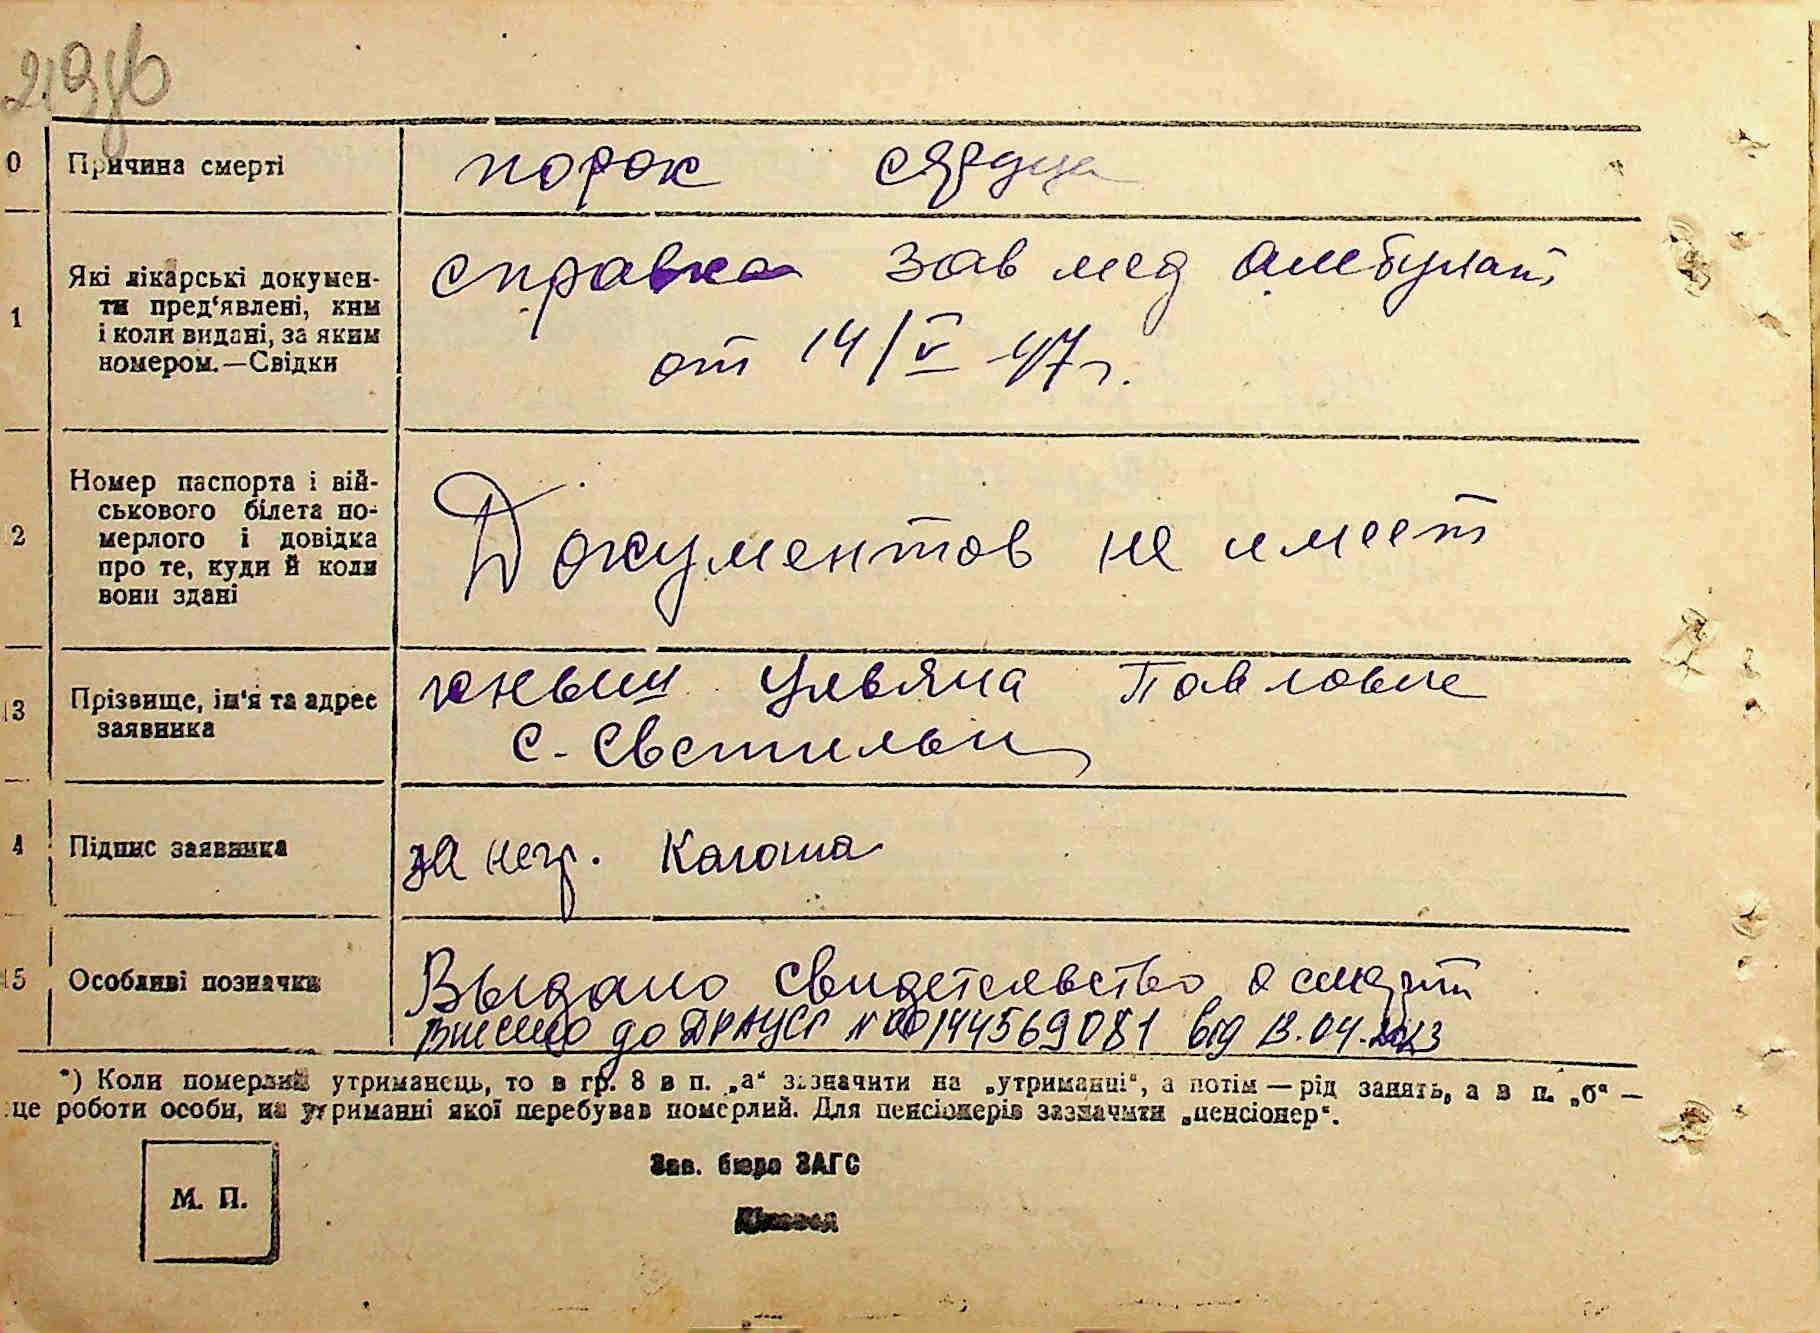 0 Причина смерті порок сярдца
1 Які лікарські докумен-
ти пред‘явлені, ким
і коли видані, за яким
номером.—Свідки
справка зав мед амбулат
от 14/V 47 г.
2 Номер паспорта і вій-
ськового білета по-
мерлого і довідка
про те, куди й коли
вони здані
Документов не имеет
13 Прізвище, ім‘я та адрес
заявника
Ульяна Павловне
с.
4 Підпис заявника за негр.
15 Особливі позначки Выдано свидетельство о смерти
Внесено до ДРАЦСГ № 00144569081 від 13.04.2023
*) Коли померлий утриманець, то в гр. 8 в п. „а“ зазначити на „утриманці“, а потім — рід занять, а в п. „б“ —
це роботи особи, на утриманні якої перебував померлий. Для пенсіонерів зазначити „пенсіонер“.
М. П.
Зав. бюро ЗАГС